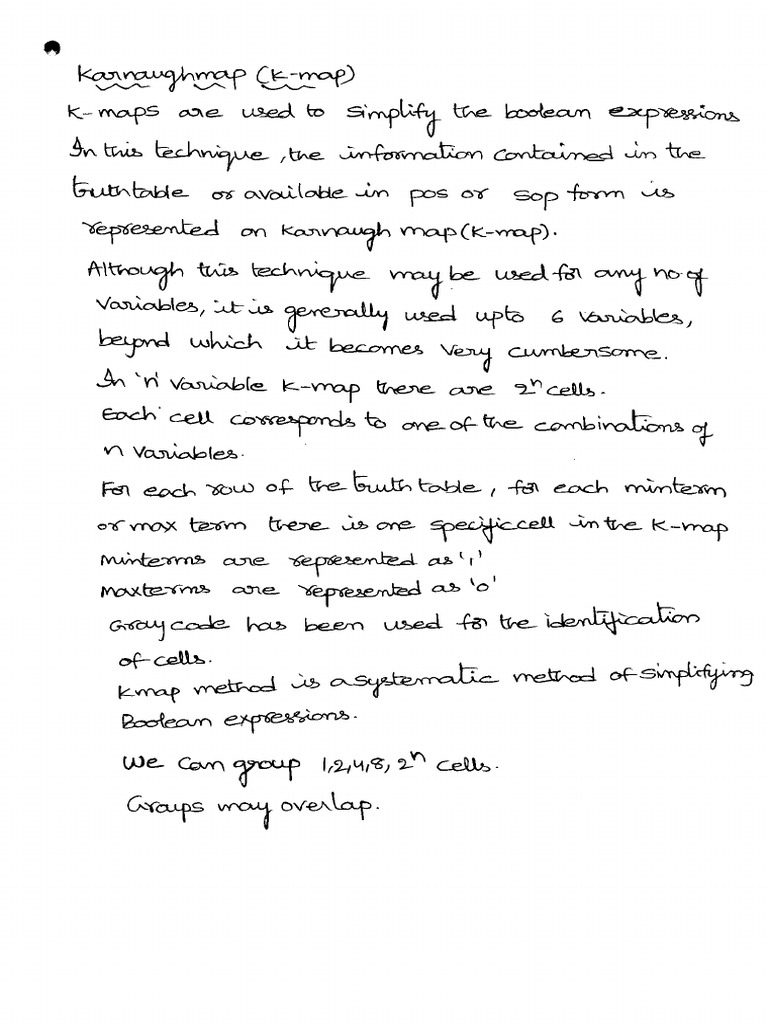 Karnaughmap (K-map)
K-maps are used to simplify the boolean expressions
In this technique, the information contained in the
truth table or available in pos or sop form is
represented on Karnaugh map (K-map).
Although this technique may be used for any no. of
variables, it is generally used upto 6 variables,
beyond which it becomes very cumbersome.
In 'n' variable K-map there are 2ⁿ cells.
Each cell corresponds to one of the combinations of
n variables.
For each row of the truth table, for each minterm
or max term there is one specific cell in the K-map
minterms are represented as '1'
maxterms are represented as '0'
Gray code has been used for the identification
of cells.
Kmap method is a systematic method of simplifying
Boolean expressions.
We can group 1,2,4,8, 2ⁿ cells.
Groups may overlap.